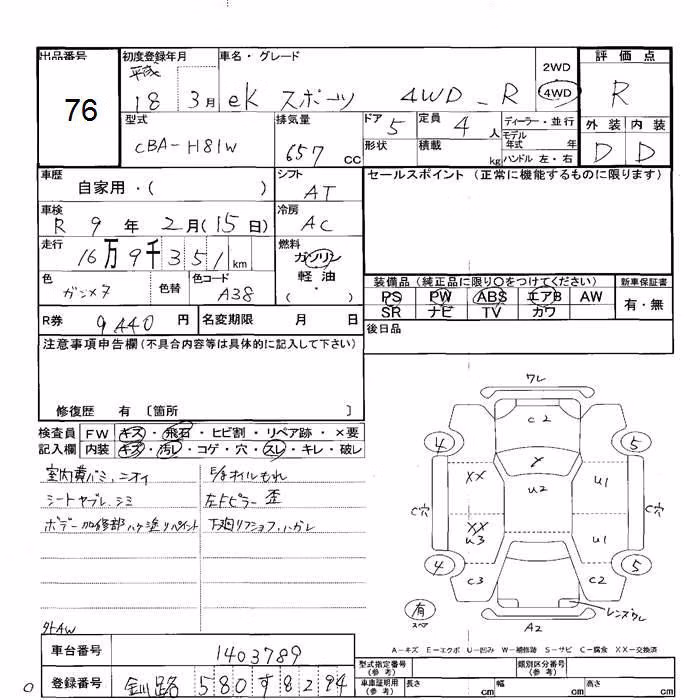 出品番号
76
初度登録年月
平成
18 3月
車名・グレード
eK スポーツ 4WD _ R
2WD
4WD
評価点
R
外装 内装
D D
型式
CBA-H81W
排気量
657 CC
ドア 5
定員 4 人
形状
積載 kg
ディーラー・並行
モデル
年式 年
ハンドル 左・右
車歴
自家用・( )
シフト
AT
セールスポイント (正常に機能するものに限ります)
車検
R 9 年 2月(15日)
冷房
AC
走行
16万9千351km
燃料
ガソリン
軽油
( ・ )
色
ガンメタ
色替
色コード
A38
装備品 (純正品に限り○をつけてください)
PS PW ABS エアB AW
SR ナビ TV カワ
新車保証書
有・無
R券
9440 円
名変期限 月 日
後日品
注意事項申告欄 (不具合内容等は具体的に記入して下さい)
修復歴 有 〔箇所 〕
検査員
記入欄
FW キズ・飛石・ヒビ割・リペア跡・×要
内装 キズ・汚レ・コゲ・穴・スレ・キレ・破レ
室内黄バミ、ニオイ
シートヤブレ、シミ
ボデー加修部ハケ塗リペイント
E/gオイルもれ
左Fピラー 歪
下廻リフショク、ハガレ
ワレ
C2
4
5
Y
XX
U2
U1
C穴
C穴
XX
U3
U1
4
5
C3
C2
有
スペア
レンズワレ
A2
外AW
A-キズ E-エクボ U-凹み W-補修跡 S-サビ C-腐食 XX-交換済
車台番号
1403789
登録番号
釧路 580 す 8294
型式指定番号
(参考)
類別区分番号
(参考)
車庫証明用
(参考)
長さ cm
幅 cm
高さ cm